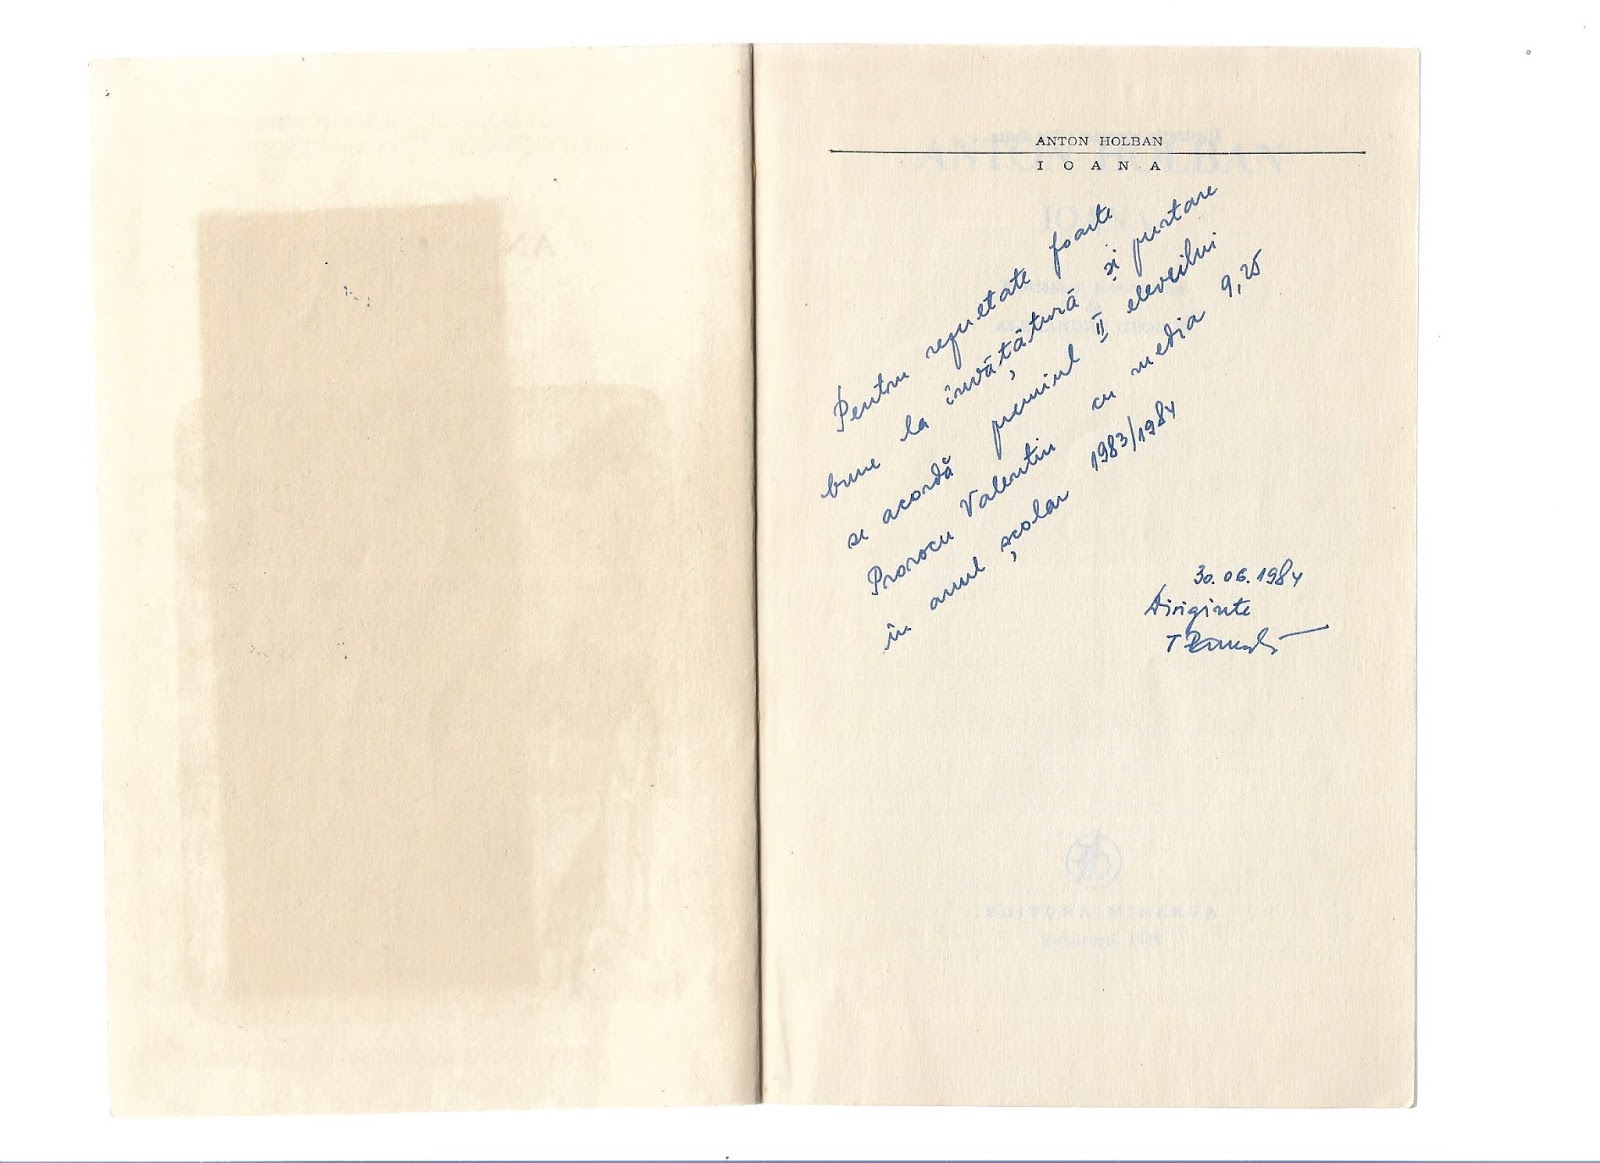 ANTON HOLBAN
IOANA
Pentru rezultate foarte
bune la învățătură și purtare
se acordă premiul II elevului
Prorocu Valentin cu media 9,25
în anul școlar 1983/1984
30.06.1984
Diriginte
T
EDITURA MINERVA